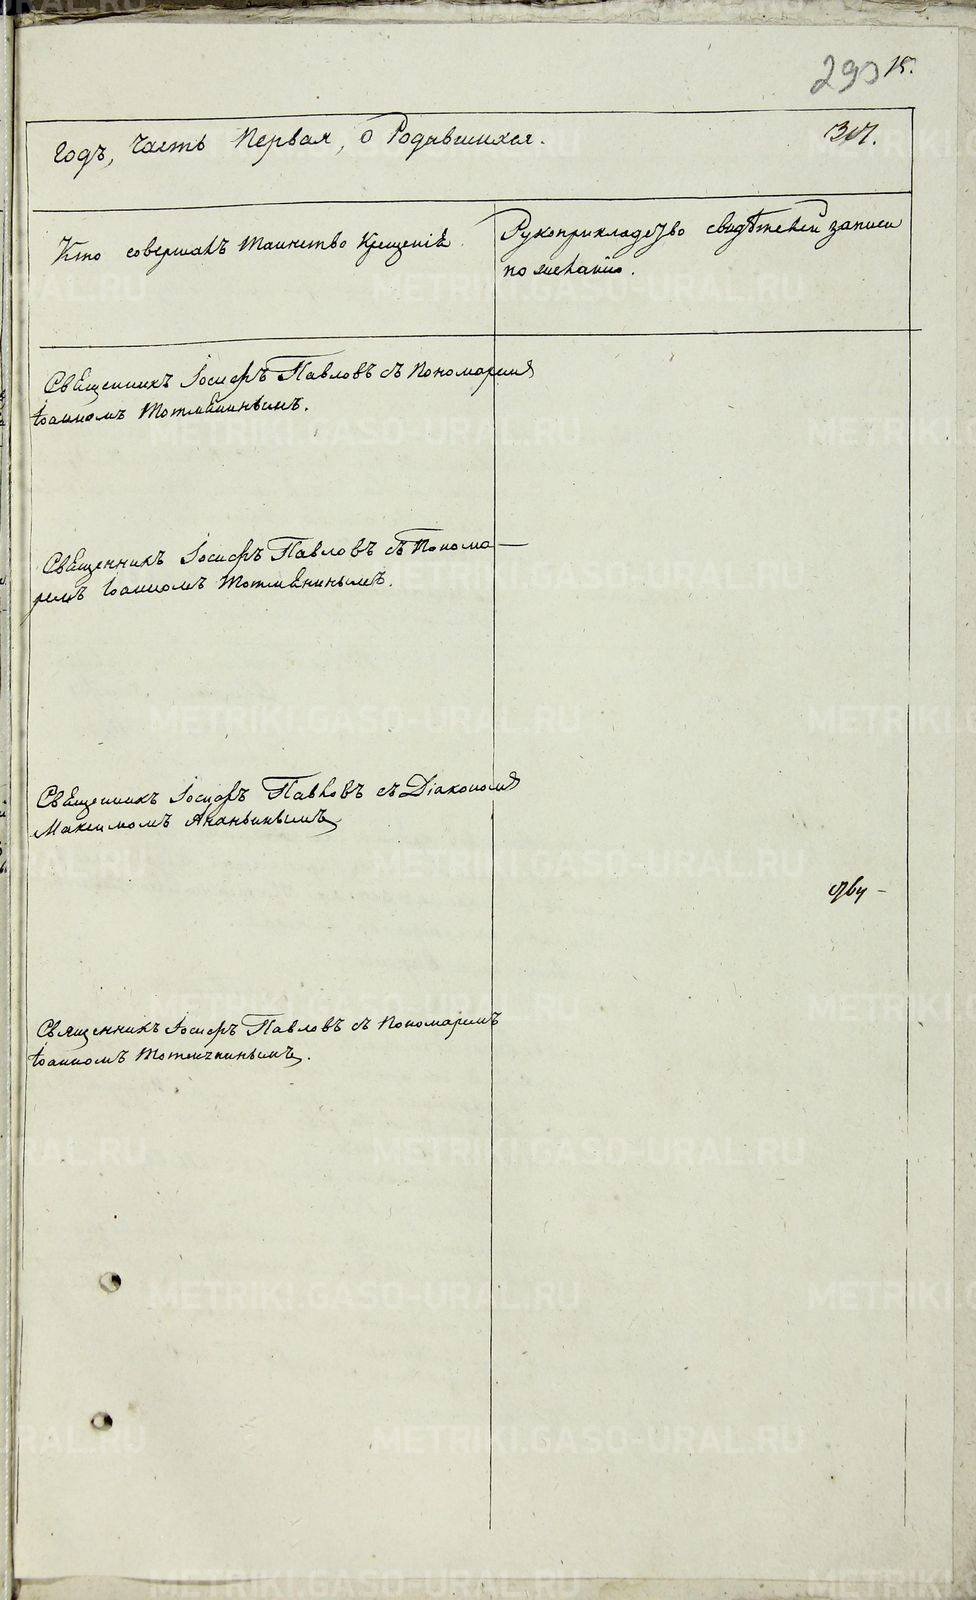 290 15.
Годъ, Часть Первая, о Родившихся. 307.
Кто совершалъ таинство Крещенія.
Рукоприкладство свидѣтелей записи
по желанію.
Священникъ Іосифъ Павловъ съ Пономаремъ
Іоанномъ
Священникъ Іосифъ Павловъ съ Понома-
ремъ Іоанномъ
Священникъ Іосифъ Павловъ съ Діакономъ
Максимомъ Ананьинымъ
Священникъ Іосифъ Павловъ съ Пономаремъ
Іоанномъ
METRIKI.GASO-URAL.RU